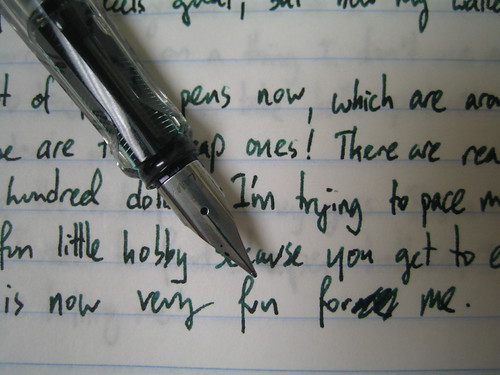 good, but now my
of pens now, which are
are ones! There are
hundred I'm trying to pace
fun little hobby because you get to
is now very fun for me.